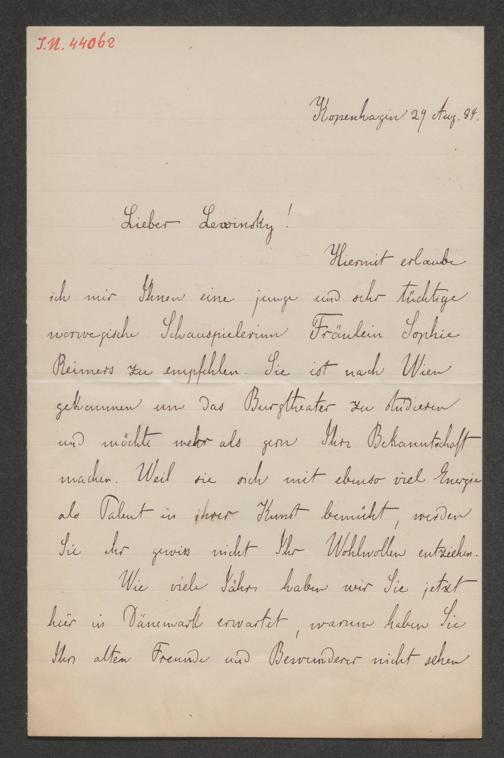 I.N. 44062
Kopenhagen 29 Aug. 84.
Lieber Lewinsky!
Hiermit erlaube
ich mir Ihnen eine junge und sehr tüchtige
norwegische Schauspielerinn Fräulein Sophie
Reimers zu empfehlen. Sie ist nach Wien
gekommen um das Burgtheater zu studieren
und möchte mehr als gern Ihre Bekanntschaft
machen. Weil sie sich mit ebenso viel Energie
als Talent in ihrer Kunst bemüht, werden
Sie ihr gewiss nicht Ihr Wohlwollen entziehen.
Wie viele Jahre haben wir Sie jetzt
hier in Dänemark erwartet, warum haben Sie
Ihre alten Freunde und Bewunderer nicht sehen